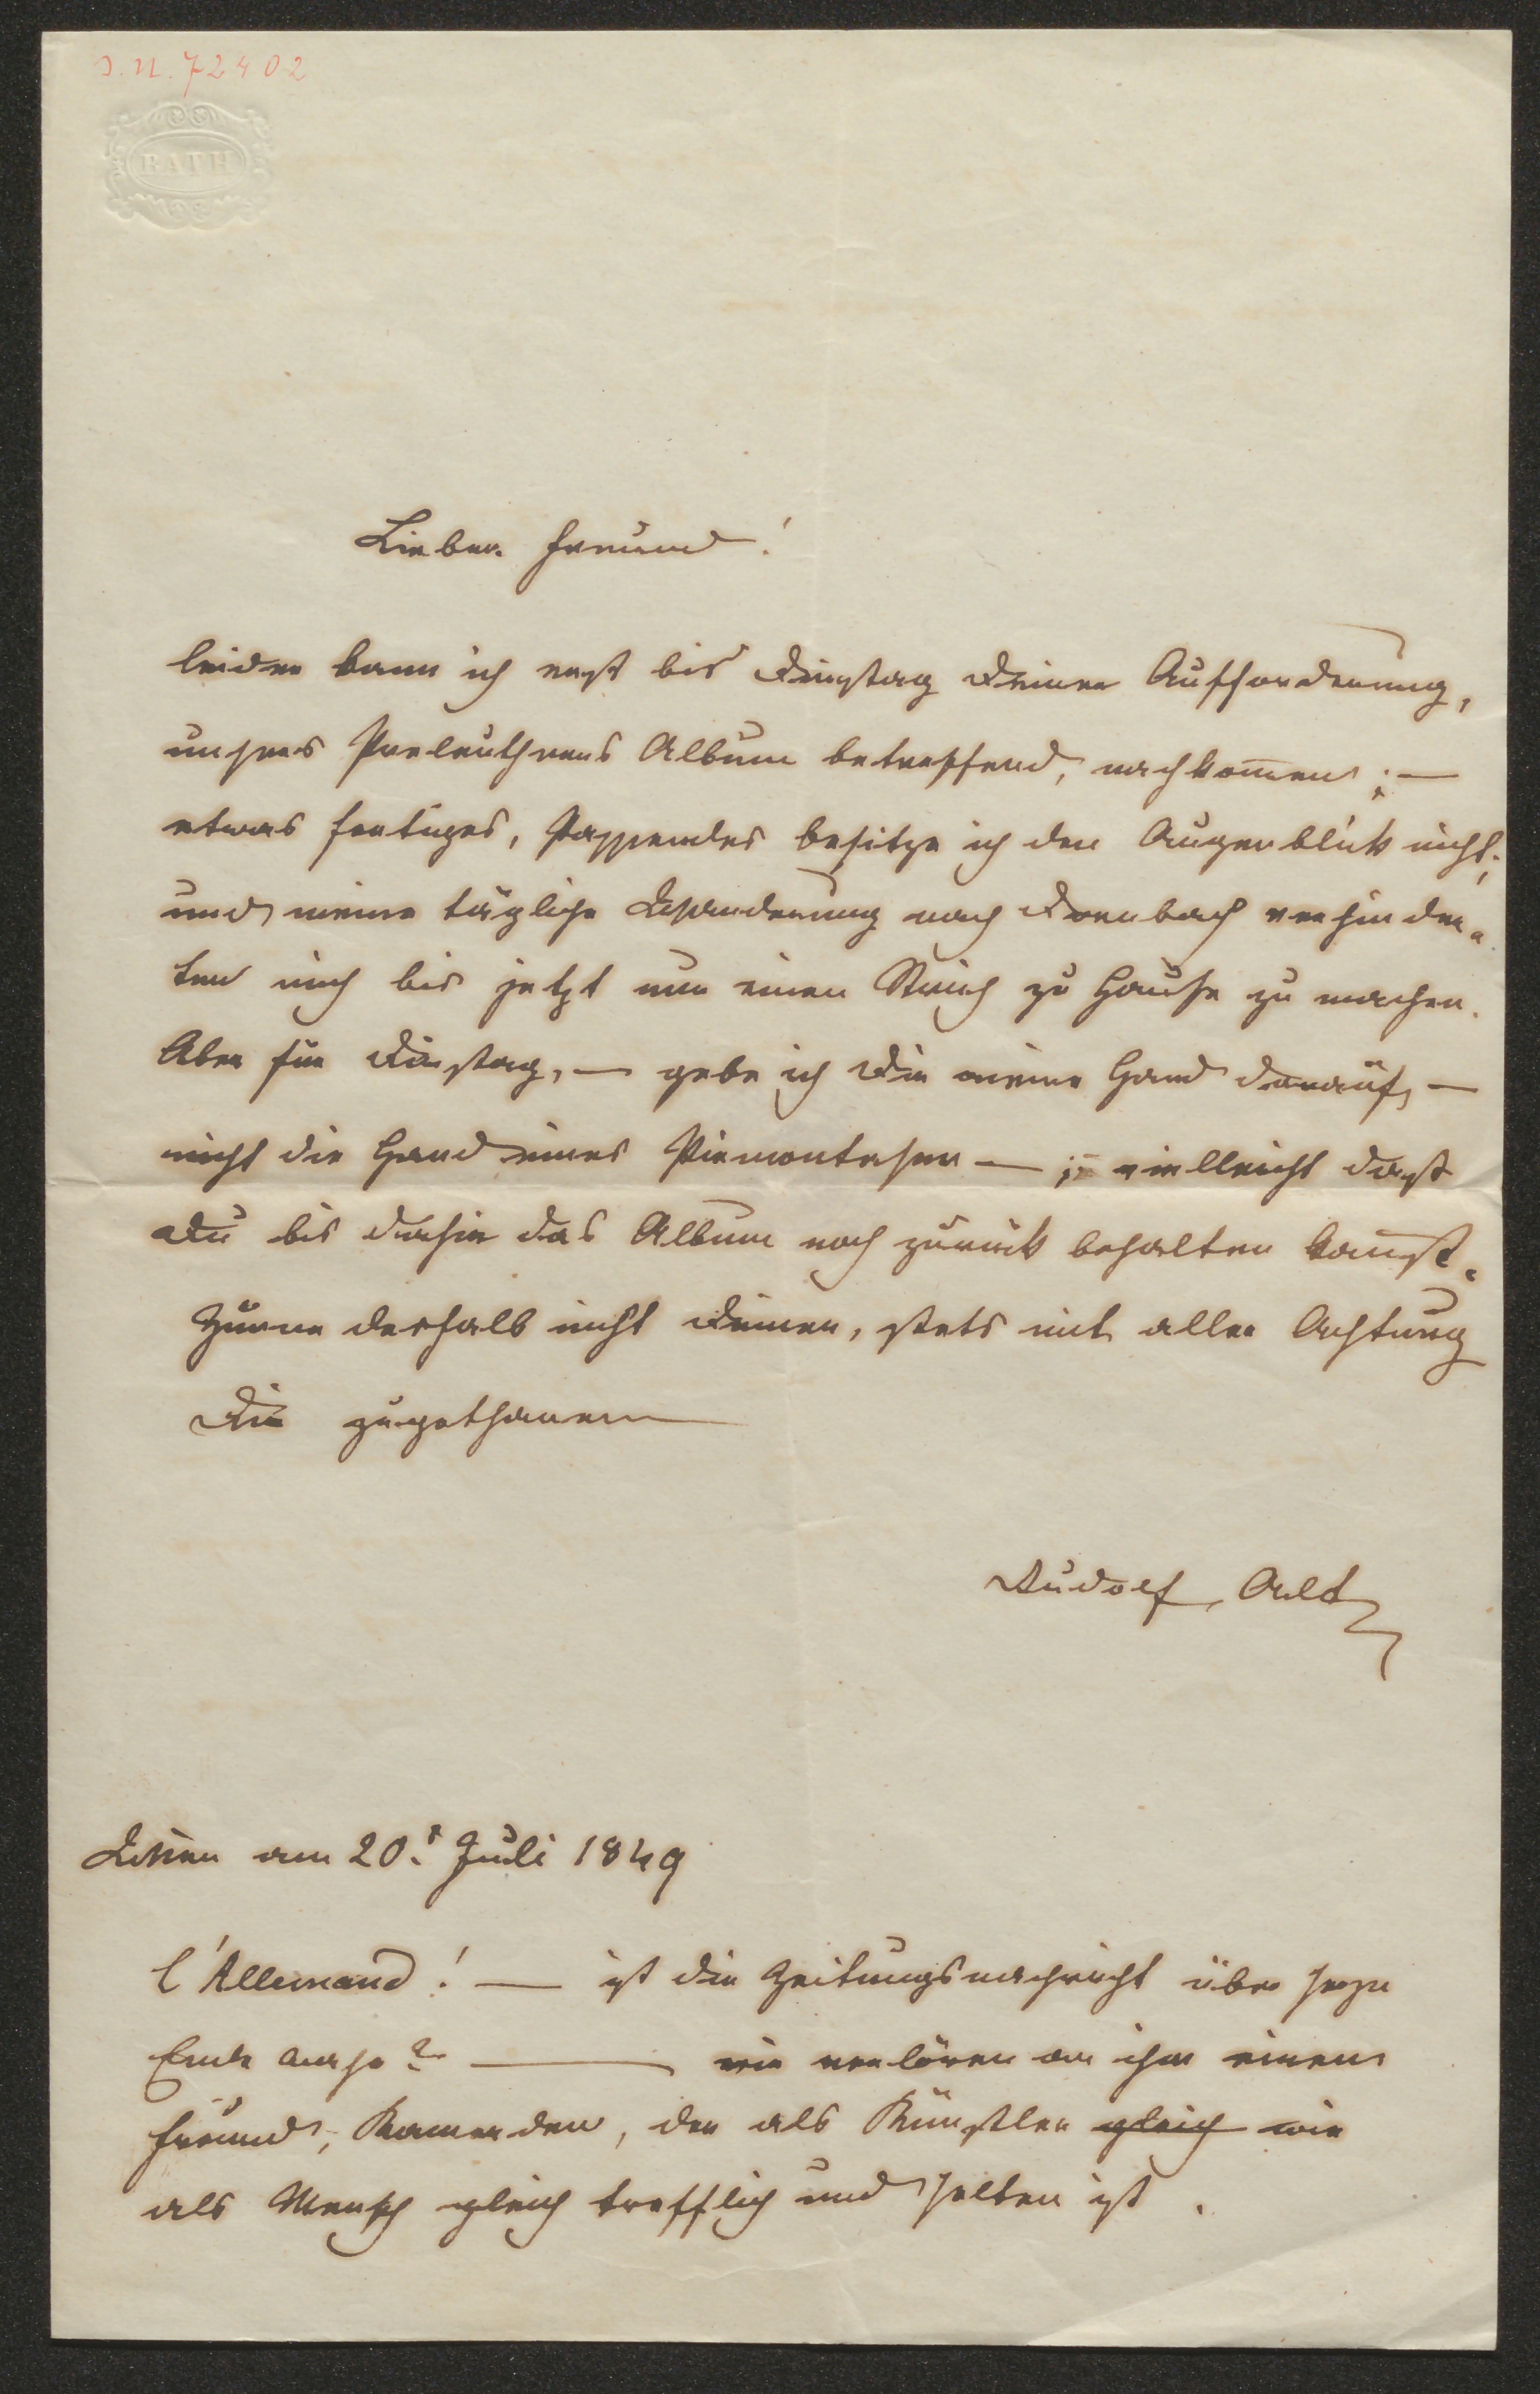 I.N. 72402
BATH
Lieber Freund!
leider kann ich erst bis Dinstag Deiner Aufforderung,
unseres Preleuthners Album betreffend, nachkom̄en; —
etwas fertiges, Passendes besitze ich den Augenblick nicht;
und meine tägliche Wanderung nach Dornbach verhinder„
ten mich bis jetzt nur einen Strich zu Hause zu machen.
Aber für Dinstag, — gebe ich Dir meine Hand darauf, —
nicht die Hand eines Piemontesen — ; vielleicht dass
Du bis dahin das Album noch zurück behalten kan̄st.
Zürne desshalb nicht Deinen, stets mit aller Achtung
Dir zugethanen
Rudolf Alt
Wien am 20. Juli 1849
l'Allemand! — ist die Zeitungsnachricht über
Ende wahr? — wir verlören an ihm einen
Freund, Kameraden, der als Künstler gleich wie
als Mensch gleich trefflich und selten ist.